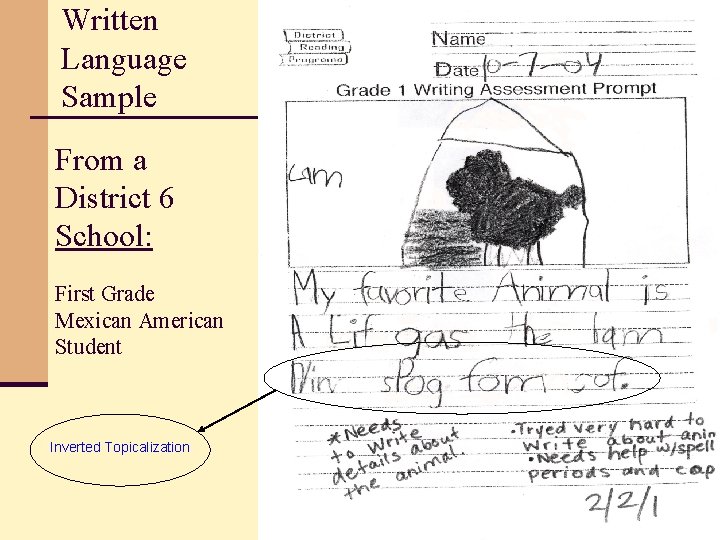 Written
Language
Sample
From a
District 6
School:
First Grade
Mexican American
Student
Inverted Topicalization
District
Reading
Programs
Name
Date 10-7-04
Grade 1 Writing Assessment Prompt
Lam
My favorite Animal is
A Lif gas the lam
spog fom sof.
*Needs
to write
details about
the animal.
•Tryed very hard to
write about anim
•Needs help w/spell
periods and cap
2/2/1